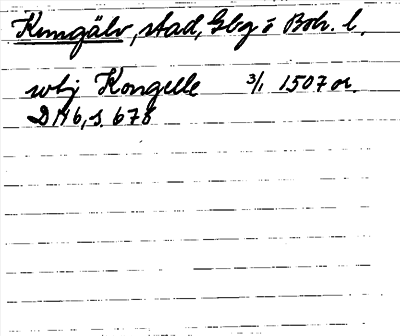 Kungälv, stad, Gbg o Boh. l.
vthj Kongelle 3/1 1507 or.
DN 6, s. 675